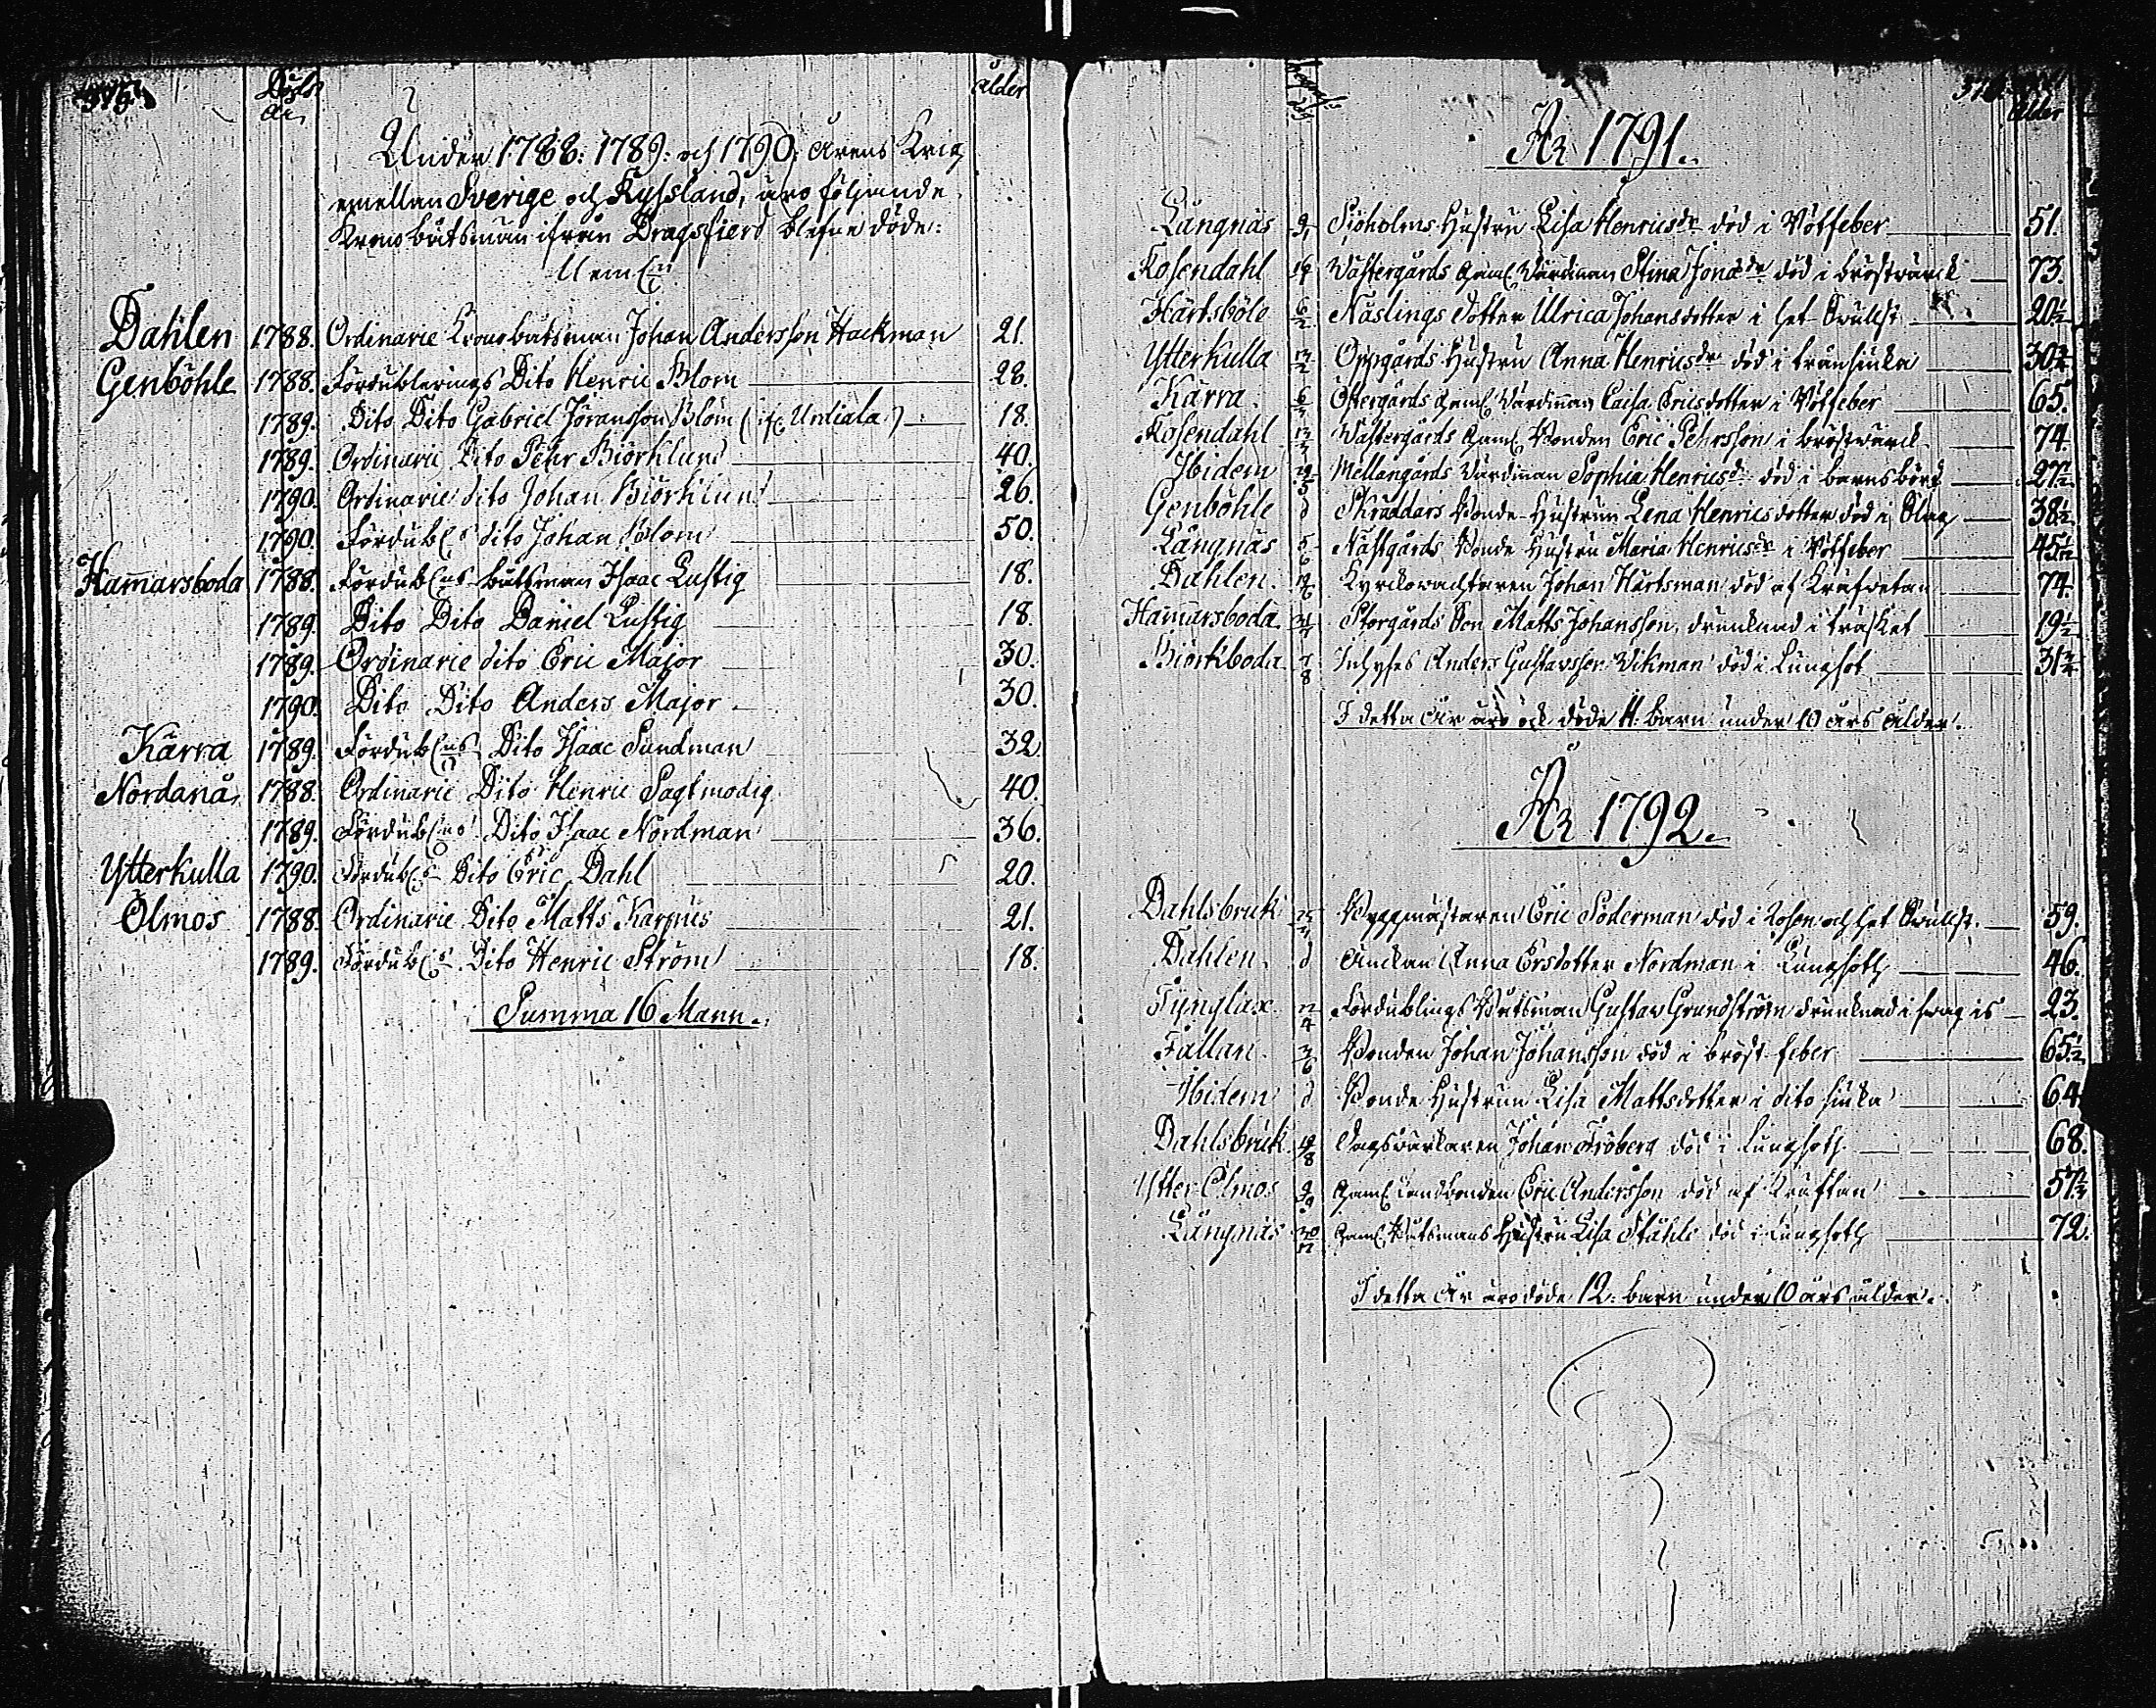 375
Döds
År
ålder
Under 1788: 1789: och 1790: årens Krig
emellan Sverige och Ryssland, äro följande
Kronobåtsmän ifrån Dragsfierd blefne döde:
Dahlen 1788. Ordinarie Kronobåtsman Johan Andersson Hackman 21.
Genböhle 1788. Fördublerings Dito Henric Blom 28.
1789. Dito Dito Gabriel Jöransson Blom (if. Urdiala) 18.
1789. Ordinarie Dito Pehr Biörklund 40.
1790. Ordinarie dito Johan Biörklund 26.
1790. Fördubl:s dito Johan Blom 50.
Ham̄arsboda 1788. Fördubl:ngs båtsman Isaac Lustig 18.
1789. Dito Dito Daniel Lustig 18.
1789. Ordinarie dito Eric Major 30.
1790. Dito Dito Anders Major 30.
Kärra 1789. Fördubl:ngs Dito Isaac Sundman 32
Nordanå 1788. Ordinarie Dito Henric Sagtmodig 40.
1789. Fördubl:ngs Dito Isaac Nordman 36.
Ytterkulla 1790. Fördubl:s Dito Eric Dahl 20.
Ölmos 1788. Ordinarie Dito Matts Karpus 21.
1789. Fördubl:s Dito Henric Ström 18.
Summa 16 Mann.
376
ålder
År 1791.
Långnäs 9/1 Sjöholms Hustru Lisa Henricsdr död i Rötfeber 51.
Rosendahl 16/1 Wästergårds Gaml. Värdinnan Stina Jonædr död i bröstvärck 73.
Hertsböle 6/2 Näslings dotter Ulrica Johansdotter i het Svullst 20½
Ytterkulla 13/2 Oppgårds Hustru Anna Henricsdr död i tränsiuka 30¾
Kärra 6/3 Östergårds Gaml. Värdinnan Caisa Ericsdotter i Rötfeber 65.
Rosendahl 13/3 Wästergårds Gaml. Bonden Eric Pehrsson i bröstvärck 74.
Ibidem 29/3 Mellangårds Värdinnan Sophia Henricsdr död i barnsbörd 27½
Genböhle d Skräddars Bonde-Hustrun Lena Henricsdotter död i Slag 38½
Långnäs 5/6 Nästgårds Bonde Hustru Maria Henricsdr i Rötfeber 45½
Dahlen. 19/6 Kyrckovacktaren Johan Hartsman död af Kräfvetan 74.
Ham̄arsboda 31/7 Storgårds Son Matts Johansson, drunknad i träsket 19½
Biörkboda 7/8 Inhyses Anders Gustavsson Wikman död i Lungsot 31¾
I detta År äro ock döde 11. barn under 10 års ålder.
År 1792.
Dahlsbruk Byggmästaren Eric Söderman död i Rosen och het Svullst. 59.
Dahlen d Änckan Anna Ersdotter Nordman i Lungsoth 46.
Tynglax 22/4 Fördublings Båtsman Gustav Grundström drunknad i svag is 23.
Fallan 3/6 Bonden Johan Johansson död i bröst-feber 65½
Ibidem d Bonde Hustrun Lisa Mattsdotter i dito siuka 64
Dahlsbruk 19/8 Dagsvärkaren Johan Fröberg död i Lungsoth 68.
Ytter Ölmos 9/9 Gaml. Landbonden Eric Andersson död af Kräftan 57½
Långnäs 30/12 Gaml. Båtsmans Hustru Lisa Ståhle död i Lungsoth 72.
I detta År äro döde 12. barn under 10 års ålder.